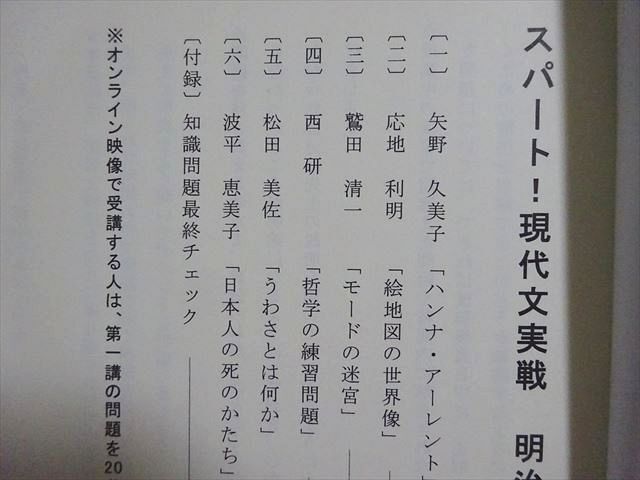 スパート！現代文実戦　明治
〔一〕　矢野　久美子　「ハンナ・アーレント」
〔二〕　応地　利明　「絵地図の世界像」
〔三〕　鷲田　清一　「モードの迷宮」
〔四〕　西　研　「哲学の練習問題」
〔五〕　松田　美佐　「うわさとは何か」
〔六〕　波平　恵美子　「日本人の死のかたち」
〔付録〕　知識問題最終チェック
※オンライン映像で受講する人は、第一講の問題を20